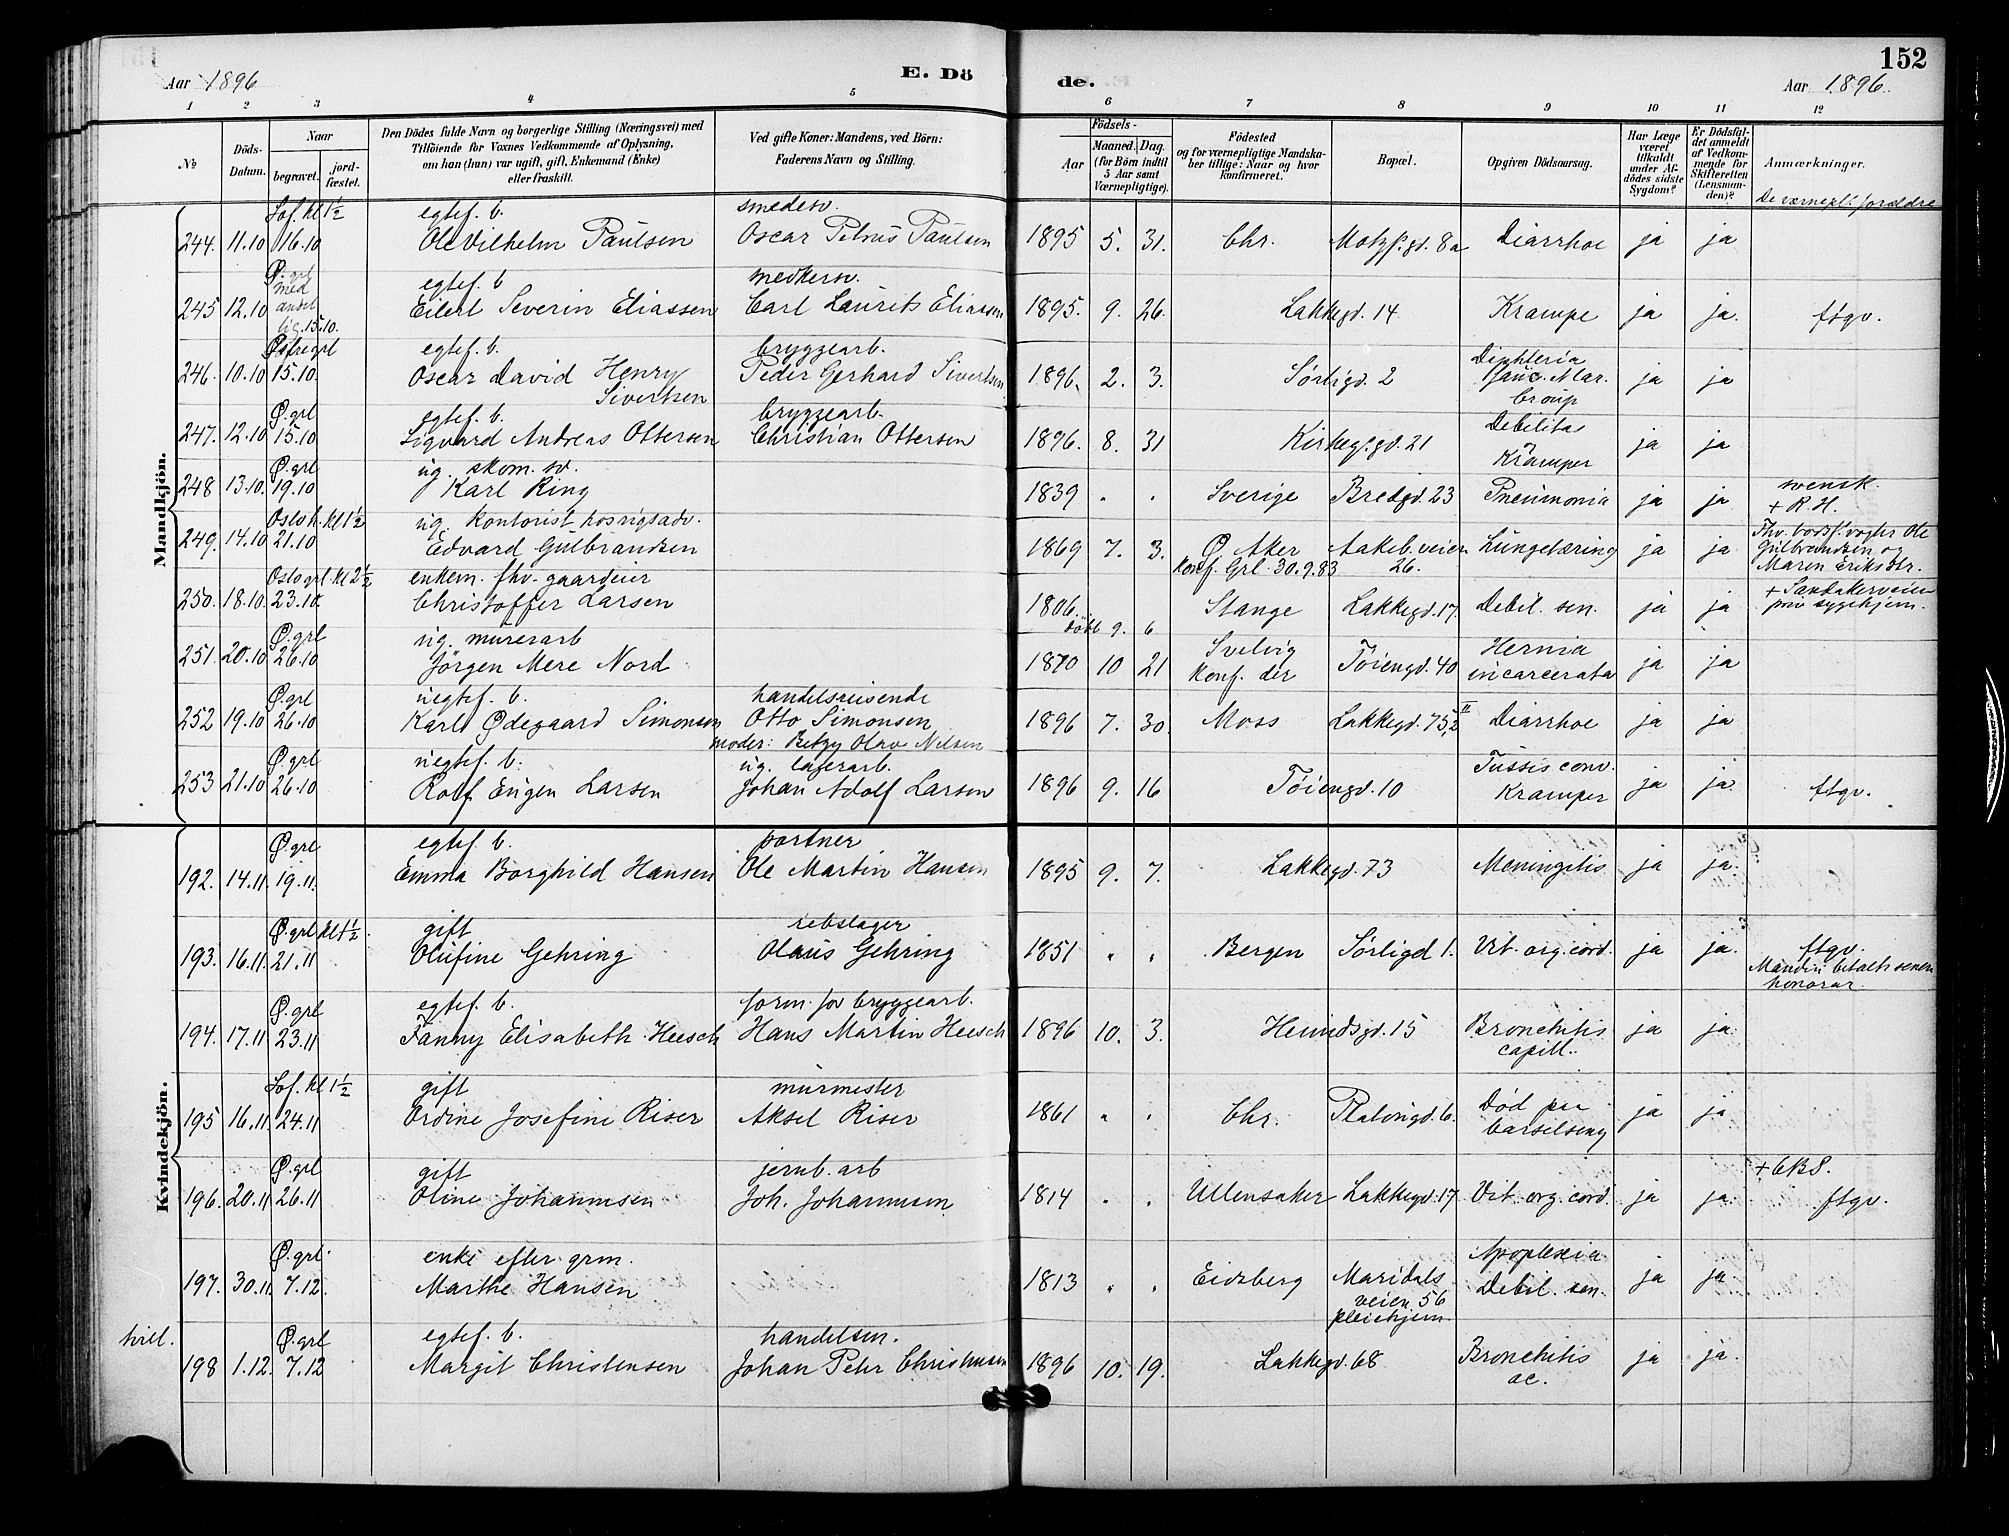 152
Aar 1896
E. Dö
de.
Aar 1896.
1 2 3 4 5 6 7 8 9 10 11 12
№
Döds-Datum.
Naar
begravet.
jord-fæstet.
Den Dödes fulde Navn og borgerlige Stilling (Næringsvei) med
Tilföiende for Voxnes Vedkommende af Oplysning,
om han (hun) var ugift, gift, Enkemand (Enke)
eller fraskilt.
Ved gifte Koner: Mandens, ved Börn:
Faderens Navn og Stilling.
Födsels-
Aar
Maaned. Dag.
(for Börn indtil
5 Aar samt
Værnepligtige).
Födested
og for værnepligtige Mandska-
ber tillige: Naar og hvor
konfirmeret.
Bopæl.
Opgiven Dödsaarsag.
Har Læge
været
tilkaldt
under Af-
dödes sidste
Sygdom?
Er Dödsfal-
det anmeldt
af Vedkom-
mende for
Skifteretten
(Lensman-
den)?
Anmærkninger.
De værnepl. forældre
Mandkjön.
Sof. kl 1½ egtef. b. smedesv.
244. 11.10 16.10 Ole Vilhelm Paulsen Oscar Petrus Paulsen 1895 5. 31. Chr. Motzf.gd. 8a Diarrhoe ja ja
Ø. grl med andet lig. 15.10. egtef. b
245 12.10 Eilert Severin Eliassen Carl Laurits Eliassen 1895. 9. 26. Lakkegd. 14 Krampe ja ja. ftgv.
Østre grl egtef. b. bryggearb.
246. 10.10 15.10. Oscar David Henry Sivertsen Peder Gerhard Sivertsen 1896. 2. 3. Sørligd. 2 Diphteria Croup ja ja
Ø. grl egtef. b. bryggearb.
247. 12.10 15.10 Sigvard Andreas Ottersen Christian Ottersen 1896. 8. 31 Kirkeg.gd. 21 Debilitas Kramper ja ja
Ø. grl ug. skom. sv.
248 13.10. 19.10 Karl Ring 1839 " " Sverige Bredgd. 23 Pneumonia ja ja svensk. + R. H.
Oslo h. kl 1½ ug. kontorist hos rigsadv.
249. 14.10 21.10 Edvard Gulbrandsen 1869 7. 3. Ø Aker konf. Grl. 30.9.83 Aakeb.veien 26. Lungetæring ja ja Fhv. bodsf.vogter Ole Gulbrandsen og Maren Eriksdtr.
Oslo grl kl 2½ enkem. fhv. gaardeier
250. 18.10. 23.10. Christoffer Larsen 1806. døbt 9. 6 Stange Lakkegd. 17. Debil. sen. ja ja + Sandakerveien priv sygehjem.
Ø. grl ug. murerarb
251. 20.10 26.10 Jörgen Mere Nord 1870 10 21 Svelvig konf. der Tøiengd. 40 Hernia incarcerata ja ja
Ø. grl uegtef. b. handelsreisende
252 19.10 26.10 Karl Ødegaard Simonsen Otto Simonsen moder: Betzy Olava Nilsen 1896 7. 30. Moss Lakkegd. 75,2 II Diarrhoe ja ja
Ø. grl uegtef. b. ug. lagerarb.
253 21.10 26.10 Rolf Eugen Larsen Johan Adolf Larsen 1896 9. 16 Tøiengd. 10 Tussis conv. Kramper ja ja. ftgv.
Kvindekjön.
Ø. grl egtef. b. portner
192. 14.11. 19.11. Emma Borghild Hansen Ole Martin Hansen 1895 9. 7. Lakkegd. 73 Meningitis ja ja.
Ø. grl kl 1½. gift rebslager
193. 16.11. 21.11 Olufine Gehring Olaus Gehring 1851 " " Bergen Sørligd 1. Vit. org. cord. ja ja. ftgv. Manden betalt senere honorar.
Ø. grl egtef. b. form. for bryggearb.
194. 17.11 23.11 Fanny Elisabeth Heesch Hans Martin Heesch 1896 10. 3. Heimdsgd. 15 Bronchitis capill.. ja ja.
Sof. kl 1½ gift murmester
195 16.11. 24.11 Ordine Josefine Riser Aksel Riser 1861 " " Chr. Platougd. 6. Død paa barselseng ja ja
Ø. grl gift jernb. arb
196. 20.11 26.11 Oline Johannesen Joh. Johannesen 1814 " " Ullensaker Lakkegd. 17 Vit. org. cord. ja ja. + GBS. ftgv.
Ø. grl. enke efter grm.
197. 30.11. 7.12. Marthe Hansen 1813 " " Eidsberg Maridals veien 56 pleiehjem Apoplexia Debil. sen. ja ja
tvill. Ø. grl egtef. b. handelsm.
198 1.12. 7.12 Margit Christensen Johan Peter Christensen 1896 10. 19. Lakkegd. 68 Bronchitis ac. ja ja.